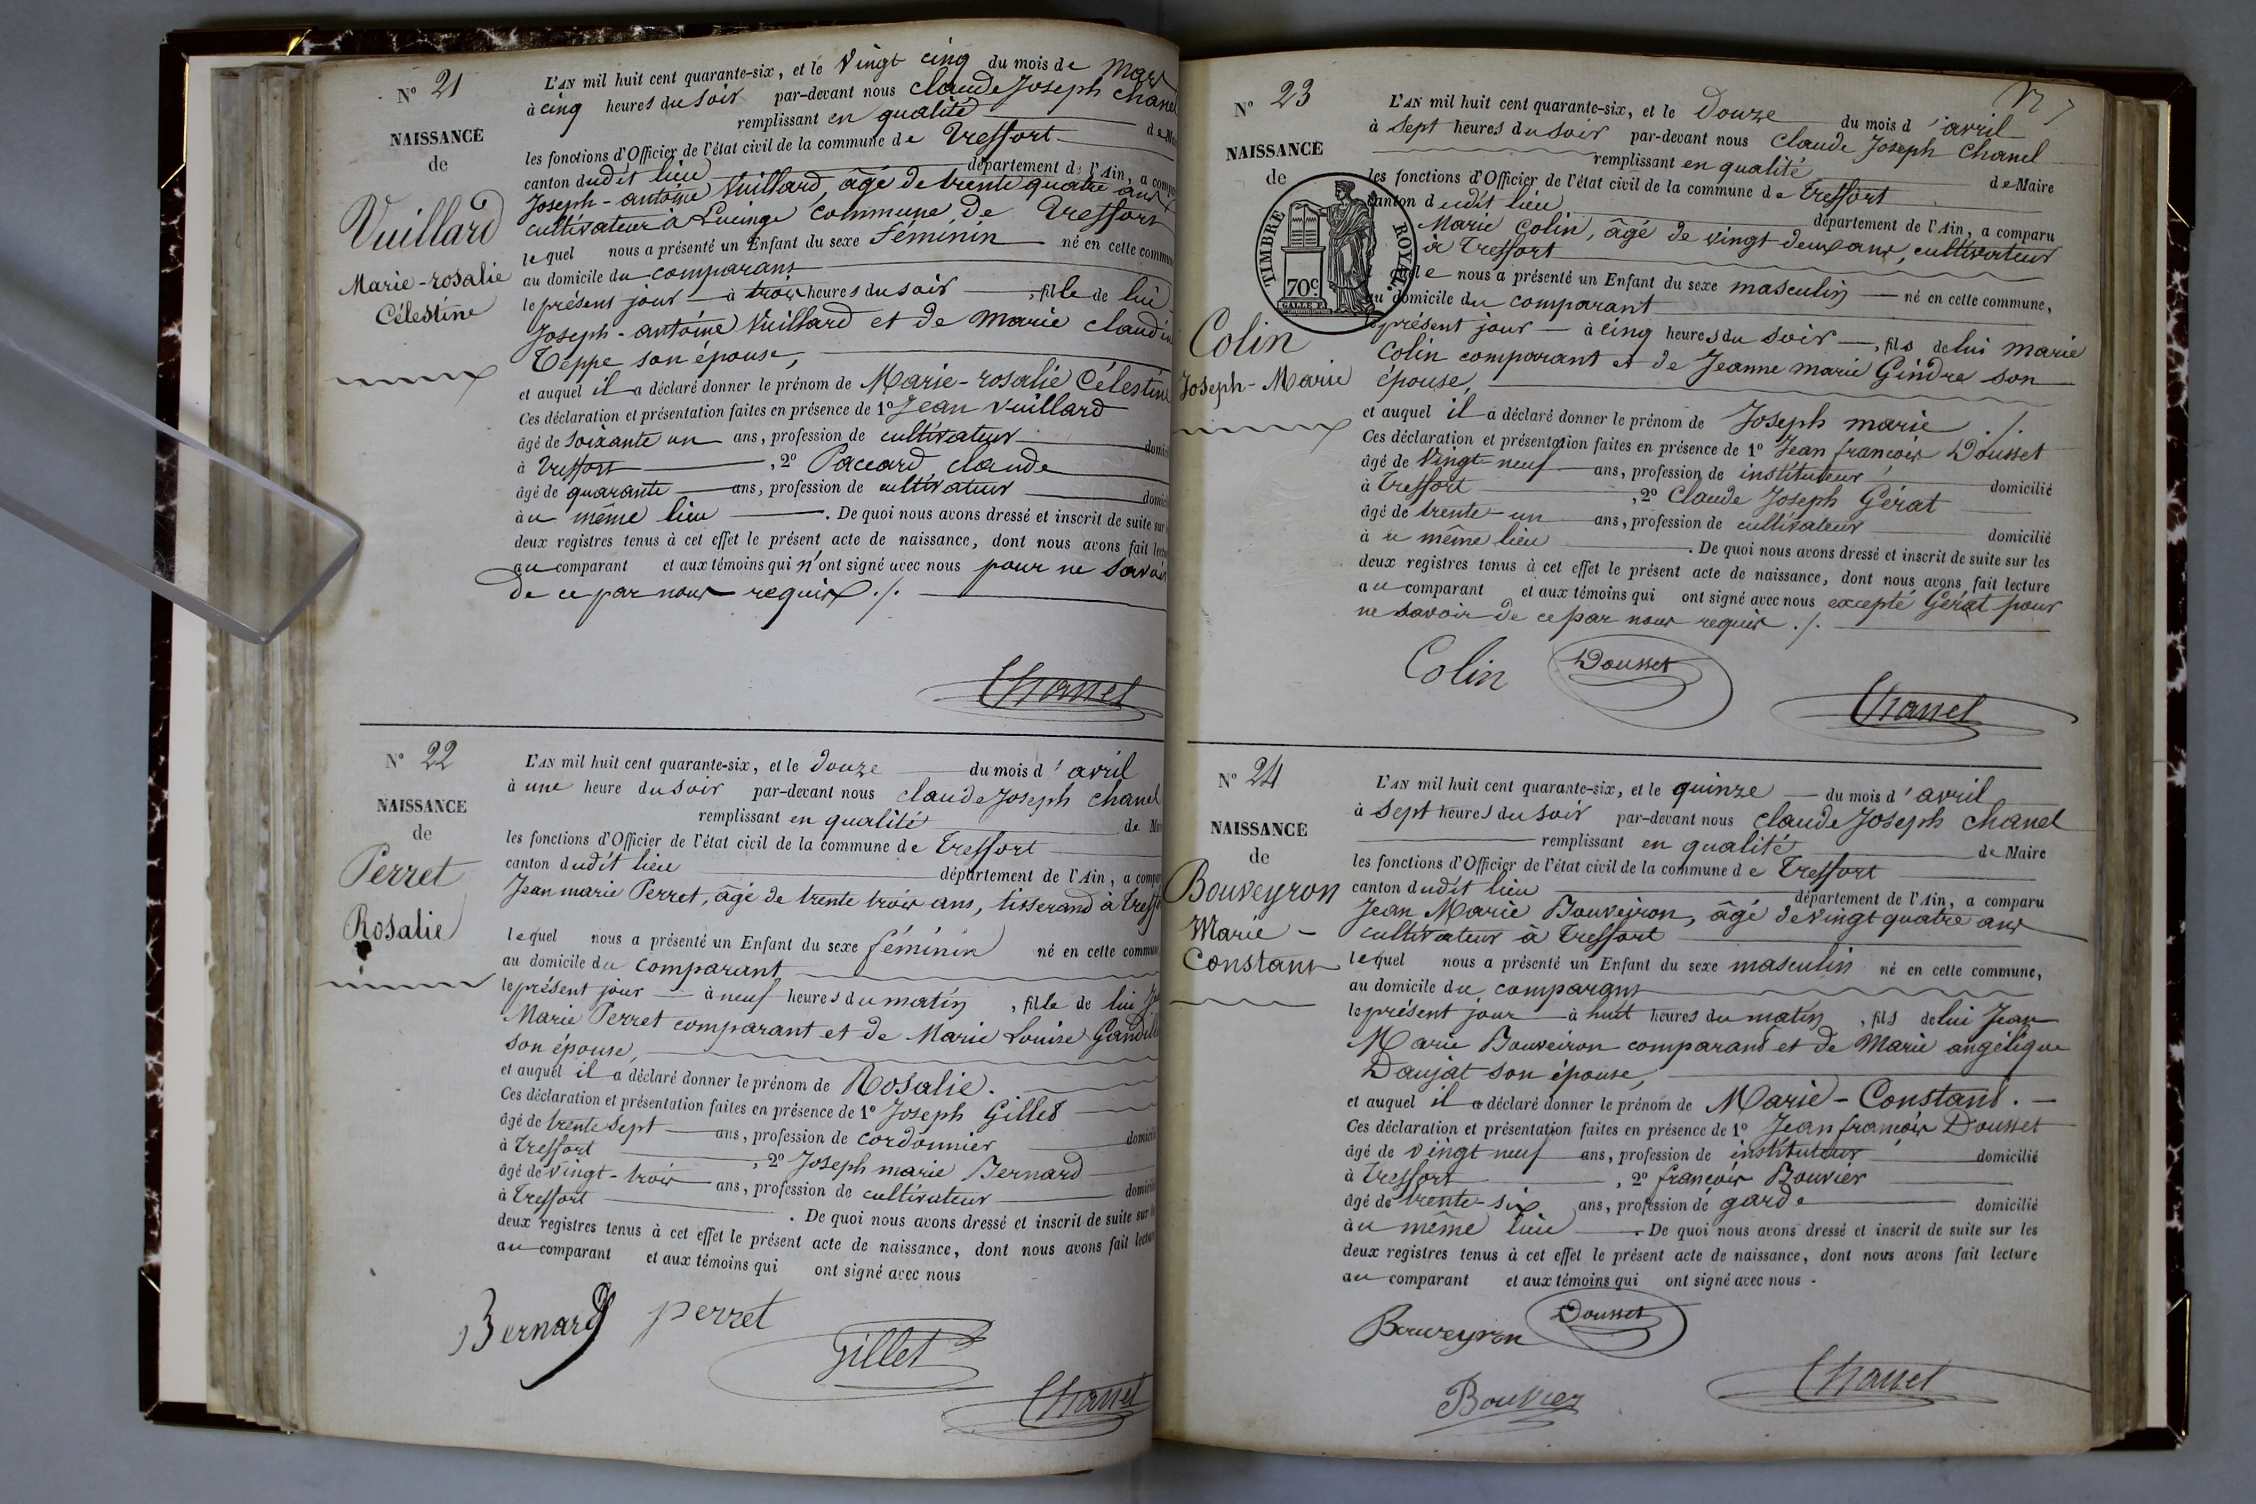 N° 21
NAISSANCE
de
Vuillard
Marie-rosalie
Célestine
L'AN mil huit cent quarante-six, et le Vingt cinq du mois de Mars
à cinq heures du soir par-devant nous claude Joseph chanel
remplissant en qualité de
les fonctions d'Officier de l'état civil de la commune de Treffort
canton dudit lieu département de l'Ain, a comparu
Joseph-antoine Vuillard, âgé de trente quatre ans
cultivateur à Lucinge commune de Treffort
lequel nous a présenté un Enfant du sexe Féminin né en cette commune
au domicile du comparant
le présent jour à trois heures du soir, fille de lui
Joseph-antoine Vuillard et de marie claudine
Teppe son épouse,
et auquel il a déclaré donner le prénom de Marie-rosalie Célestine
Ces déclaration et présentation faites en présence de 1° Jean Vuillard
âgé de soixante un ans, profession de cultivateur
à Treffort, 2° Paccard claude
âgé de quarante ans, profession de cultivateur
à u même lieu. De quoi nous avons dressé et inscrit de suite sur
deux registres tenus à cet effet le présent acte de naissance, dont nous avons fait lecture
au comparant et aux témoins qui n'ont signé avec nous pour ne savoir
de ce par nous requis ./.
Chanel
N° 22
NAISSANCE
de
Perret
Rosalie
L'AN mil huit cent quarante-six, et le douze du mois d'avril
à une heure du soir par-devant nous claude Joseph chanel
remplissant en qualité de
les fonctions d'Officier de l'état civil de la commune de Treffort
canton dudit lieu département de l'Ain, a comparu
Jean marie Perret, âgé de trente trois ans, tisserand à Treffort
lequel nous a présenté un Enfant du sexe féminin né en cette commune
au domicile du comparant
le présent jour à neuf heures du matin, fille de lui
Marie Perret comparant et de Marie Louise
son épouse,
et auquel il a déclaré donner le prénom de Rosalie.
Ces déclaration et présentation faites en présence de 1° Joseph Gillet
âgé de trente sept ans, profession de cordonnier domicilié
à Treffort, 2° Joseph marie Bernard
âgé de vingt-trois ans, profession de cultivateur domicilié
à Treffort. De quoi nous avons dressé et inscrit de suite sur
deux registres tenus à cet effet le présent acte de naissance, dont nous avons fait lecture
au comparant et aux témoins qui ont signé avec nous
Bernard perret
Gillet
Chanel
N° 23
NAISSANCE
de
TIMBRE ROYAL
70c
Colin
Joseph-Marie
L'AN mil huit cent quarante-six, et le Douze du mois d'avril
à sept heures du soir par-devant nous claude Joseph Chanel
remplissant en qualité de Maire
les fonctions d'Officier de l'état civil de la commune de Treffort
canton dudit lieu département de l'Ain, a comparu
Marie Colin, âgé de vingt deux ans, cultivateur
à Treffort
nous a présenté un Enfant du sexe masculin né en cette commune,
au domicile du comparant
le présent jour à cinq heures du soir, fils de lui marie
Colin comparant et de Jeanne marie Gindre son
épouse,
et auquel il a déclaré donner le prénom de Joseph marie ./.
Ces déclaration et présentation faites en présence de 1° Jean françois Dousset
âgé de Vingt-neuf ans, profession de instituteur domicilié
à Treffort, 2° Claude Joseph Gérat
âgé de trente-un ans, profession de cultivateur domicilié
à u même lieu. De quoi nous avons dressé et inscrit de suite sur les
deux registres tenus à cet effet le présent acte de naissance, dont nous avons fait lecture
au comparant et aux témoins qui ont signé avec nous excepté Gérat pour
ne savoir de ce par nous requis ./.
Colin Dousset
Chanel
N° 24
NAISSANCE
de
Bouveyron
Marie-
Constant
L'AN mil huit cent quarante-six, et le quinze du mois d'avril
à sept heures du soir par-devant nous claude Joseph chanel
remplissant en qualité de Maire
les fonctions d'Officier de l'état civil de la commune de Treffort
canton dudit lieu département de l'Ain, a comparu
Jean Marie Bouveiron, âgé de vingt quatre ans
cultivateur à Treffort
lequel nous a présenté un Enfant du sexe masculin né en cette commune,
au domicile du comparant
le présent jour à huit heures du matin, fils de lui Jean
Marie Bouveiron comparant et de Marie angélique
Daujat son épouse,
et auquel il a déclaré donner le prénom de Marie-Constant.
Ces déclaration et présentation faites en présence de 1° Jean françois Dousset
âgé de vingt neuf ans, profession de instituteur domicilié
à Treffort, 2° françois Bouvier
âgé de trente-six ans, profession de garde domicilié
à u même lieu. De quoi nous avons dressé et inscrit de suite sur les
deux registres tenus à cet effet le présent acte de naissance, dont nous avons fait lecture
au comparant et aux témoins qui ont signé avec nous.
Bouveyron Dousset
Chanel
Bouvier